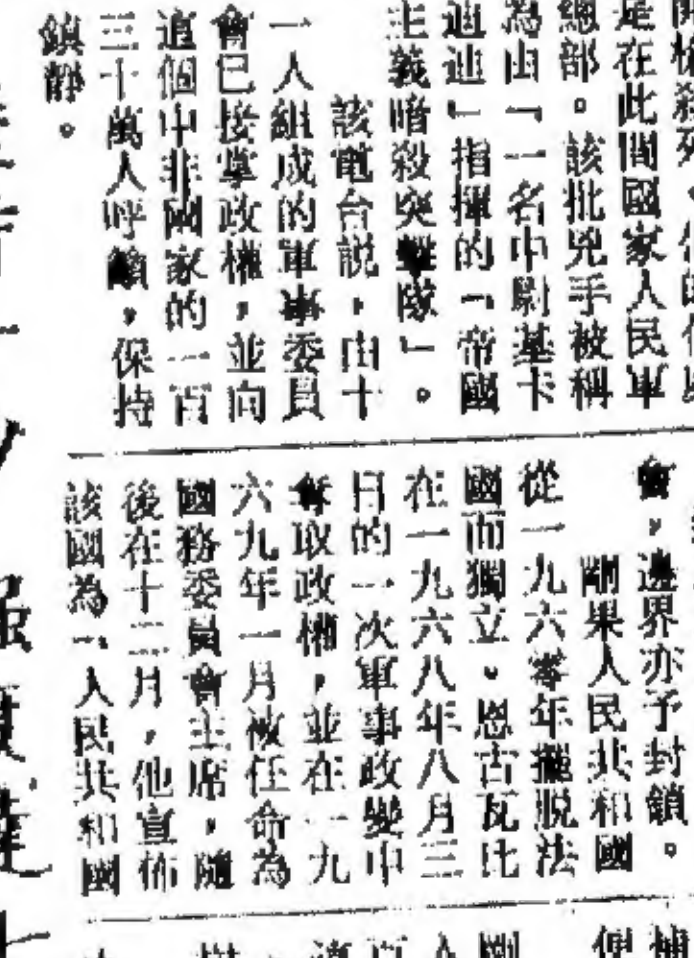 是在此間國家人民軍
總部。該批兇手被稱
為由「一名中尉基卡
迪迪」指揮的「帝國
主義暗殺突擊隊」。
該電台説，由十
一人組成的軍事委員
會已接掌政權，並向
這個中非國家的一百
三十萬人呼籲，保持
鎮靜。
會，邊界亦予封鎖。
剛果人民共和國
從一九六零年擺脱法
國而獨立。恩古瓦比
在一九六八年八月三
日的一次軍事政變中
奪取政權，並在一九
六九年一月被任命為
國務委員會主席，隨
後在十二月，他宣佈
該國為「人民共和國